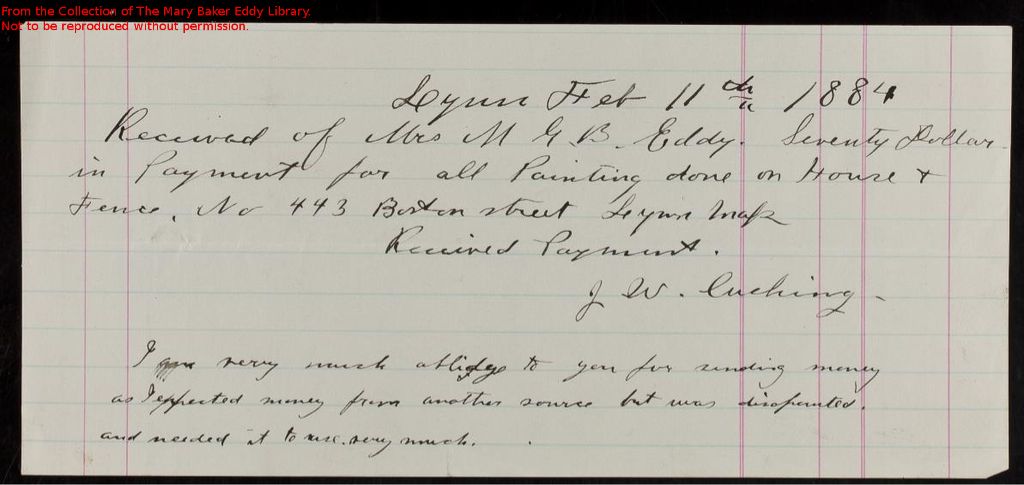 From the Collection of The Mary Baker Eddy Library.
Not to be reproduced without permission.
Lynn Feb 11th 1884
Received of Mrs M G. B. Eddy. Seventy Dollar
in Payment for all Painting done on House &
Fence, No 443 Boston street Lynn Mass
Received Payment.
J W. Cushing
I am verry much obligge to you for sending money
as I expected money from another source but was disapointed.
and needed it to use. very much.